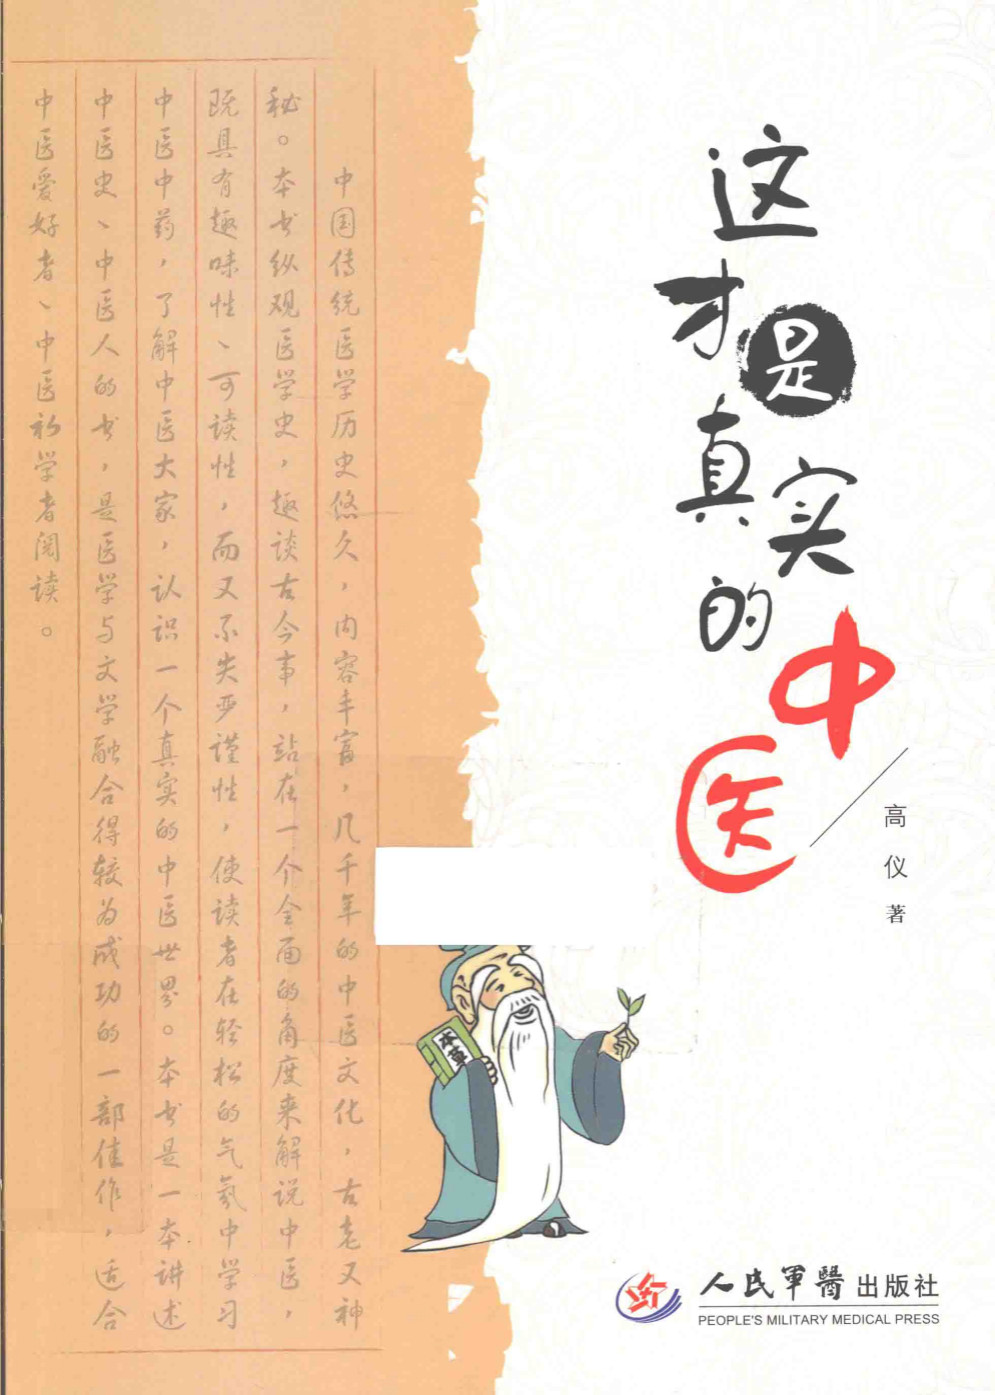 这才是真实的中医
高仪 著
中国传统医学历史悠久，内容丰富，几千年的中医文化，古老又神
秘。本书纵观医学史，趣谈古今事，站在一个全面的角度来解说中医，
既具有趣味性、可读性，而又不失严谨性，使读者在轻松的气氛中学习
中医中药，了解中医大家，认识一个真实的中医世界。本书是一本讲述
中医史、中医人的书，是医学与文学融合得较为成功的一部佳作，适合
中医爱好者、中医初学者阅读。
本草
人民军醫出版社
PEOPLE'S MILITARY MEDICAL PRESS